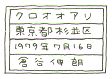 クロオオアリ
東京都杉並区
1979年7月16日
倉谷伸朗